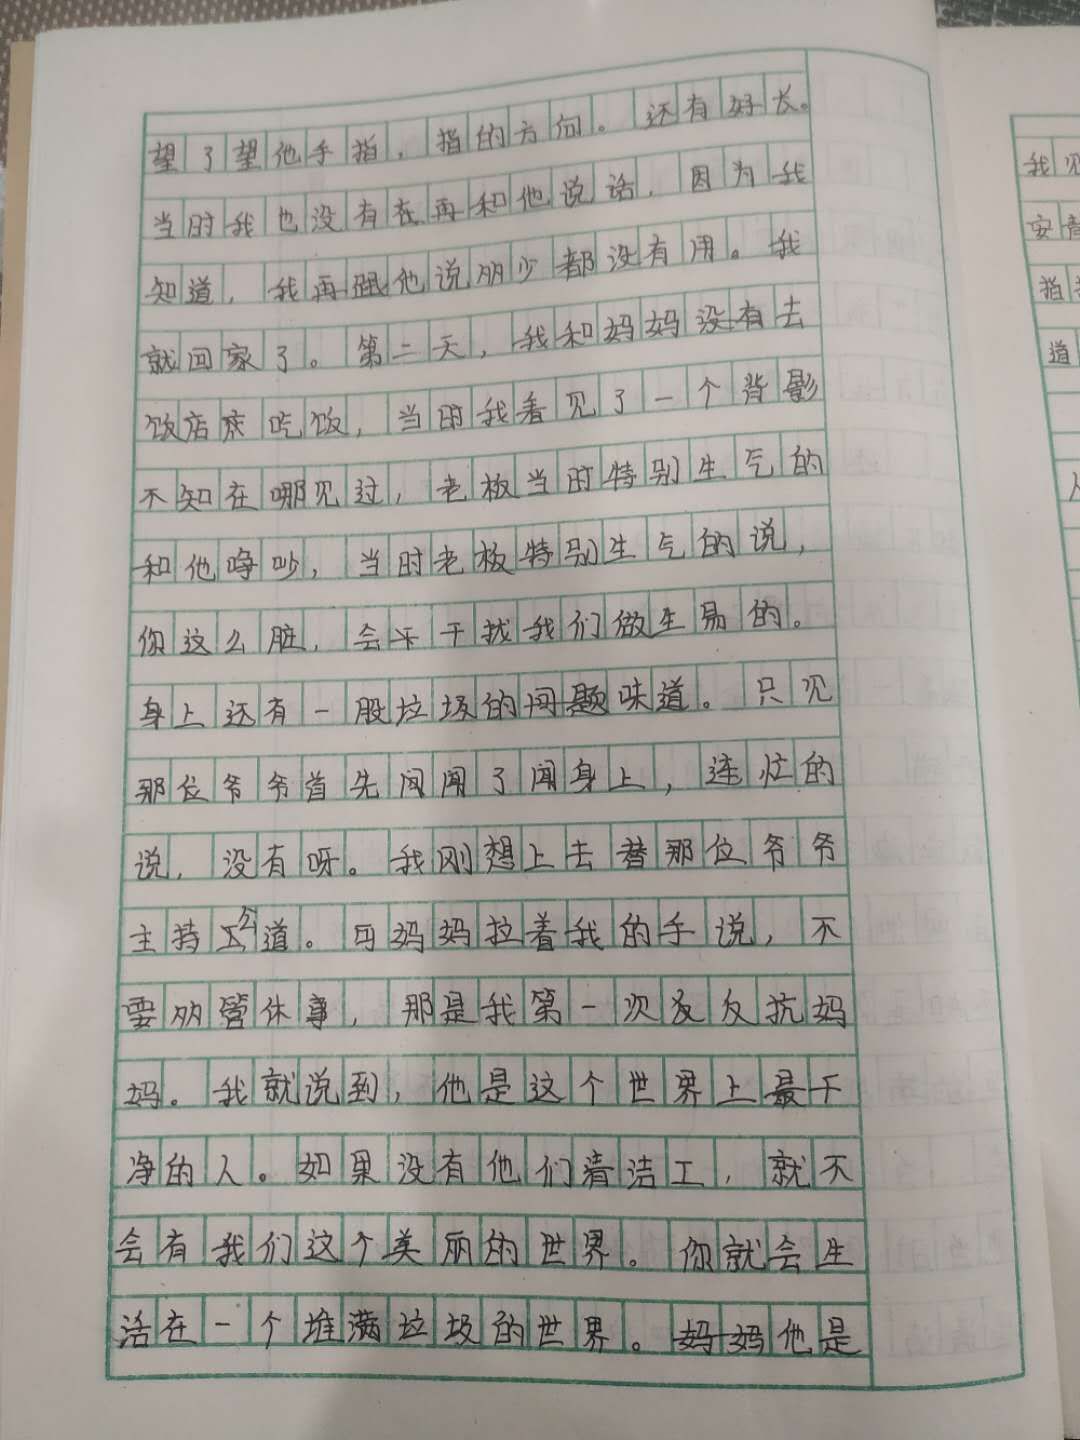 望了望他手指，指的方向。还有好长。
当时我也没有在再和他说话，因为我
知道，我再跟他说那少都没有用。我
就回家了。第二天，我和妈妈没有去
饭店庆吃饭，当时我看见了一个背影
不知在哪见过，老板当时特别生气的
和他峥吵，当时老板特别生气的说，
你这么脏，会干干扰我们做生易的。
身上还有一股垃圾的问题味道。只见
那位爷爷首先闻闻了闻身上，连忙的
说，没有呀。我刚想上去替那位爷爷
主持公道。可妈妈拉着我的手说，不
要呐管休事，那是我第一次反反抗妈
妈。我就说到，他是这个世界上最干
净的人。如果没有他们清洁工，就不
会有我们这个美丽的世界。你就会生
活在一个堆满垃圾的世界。妈妈他是
我见
安
指
道
人